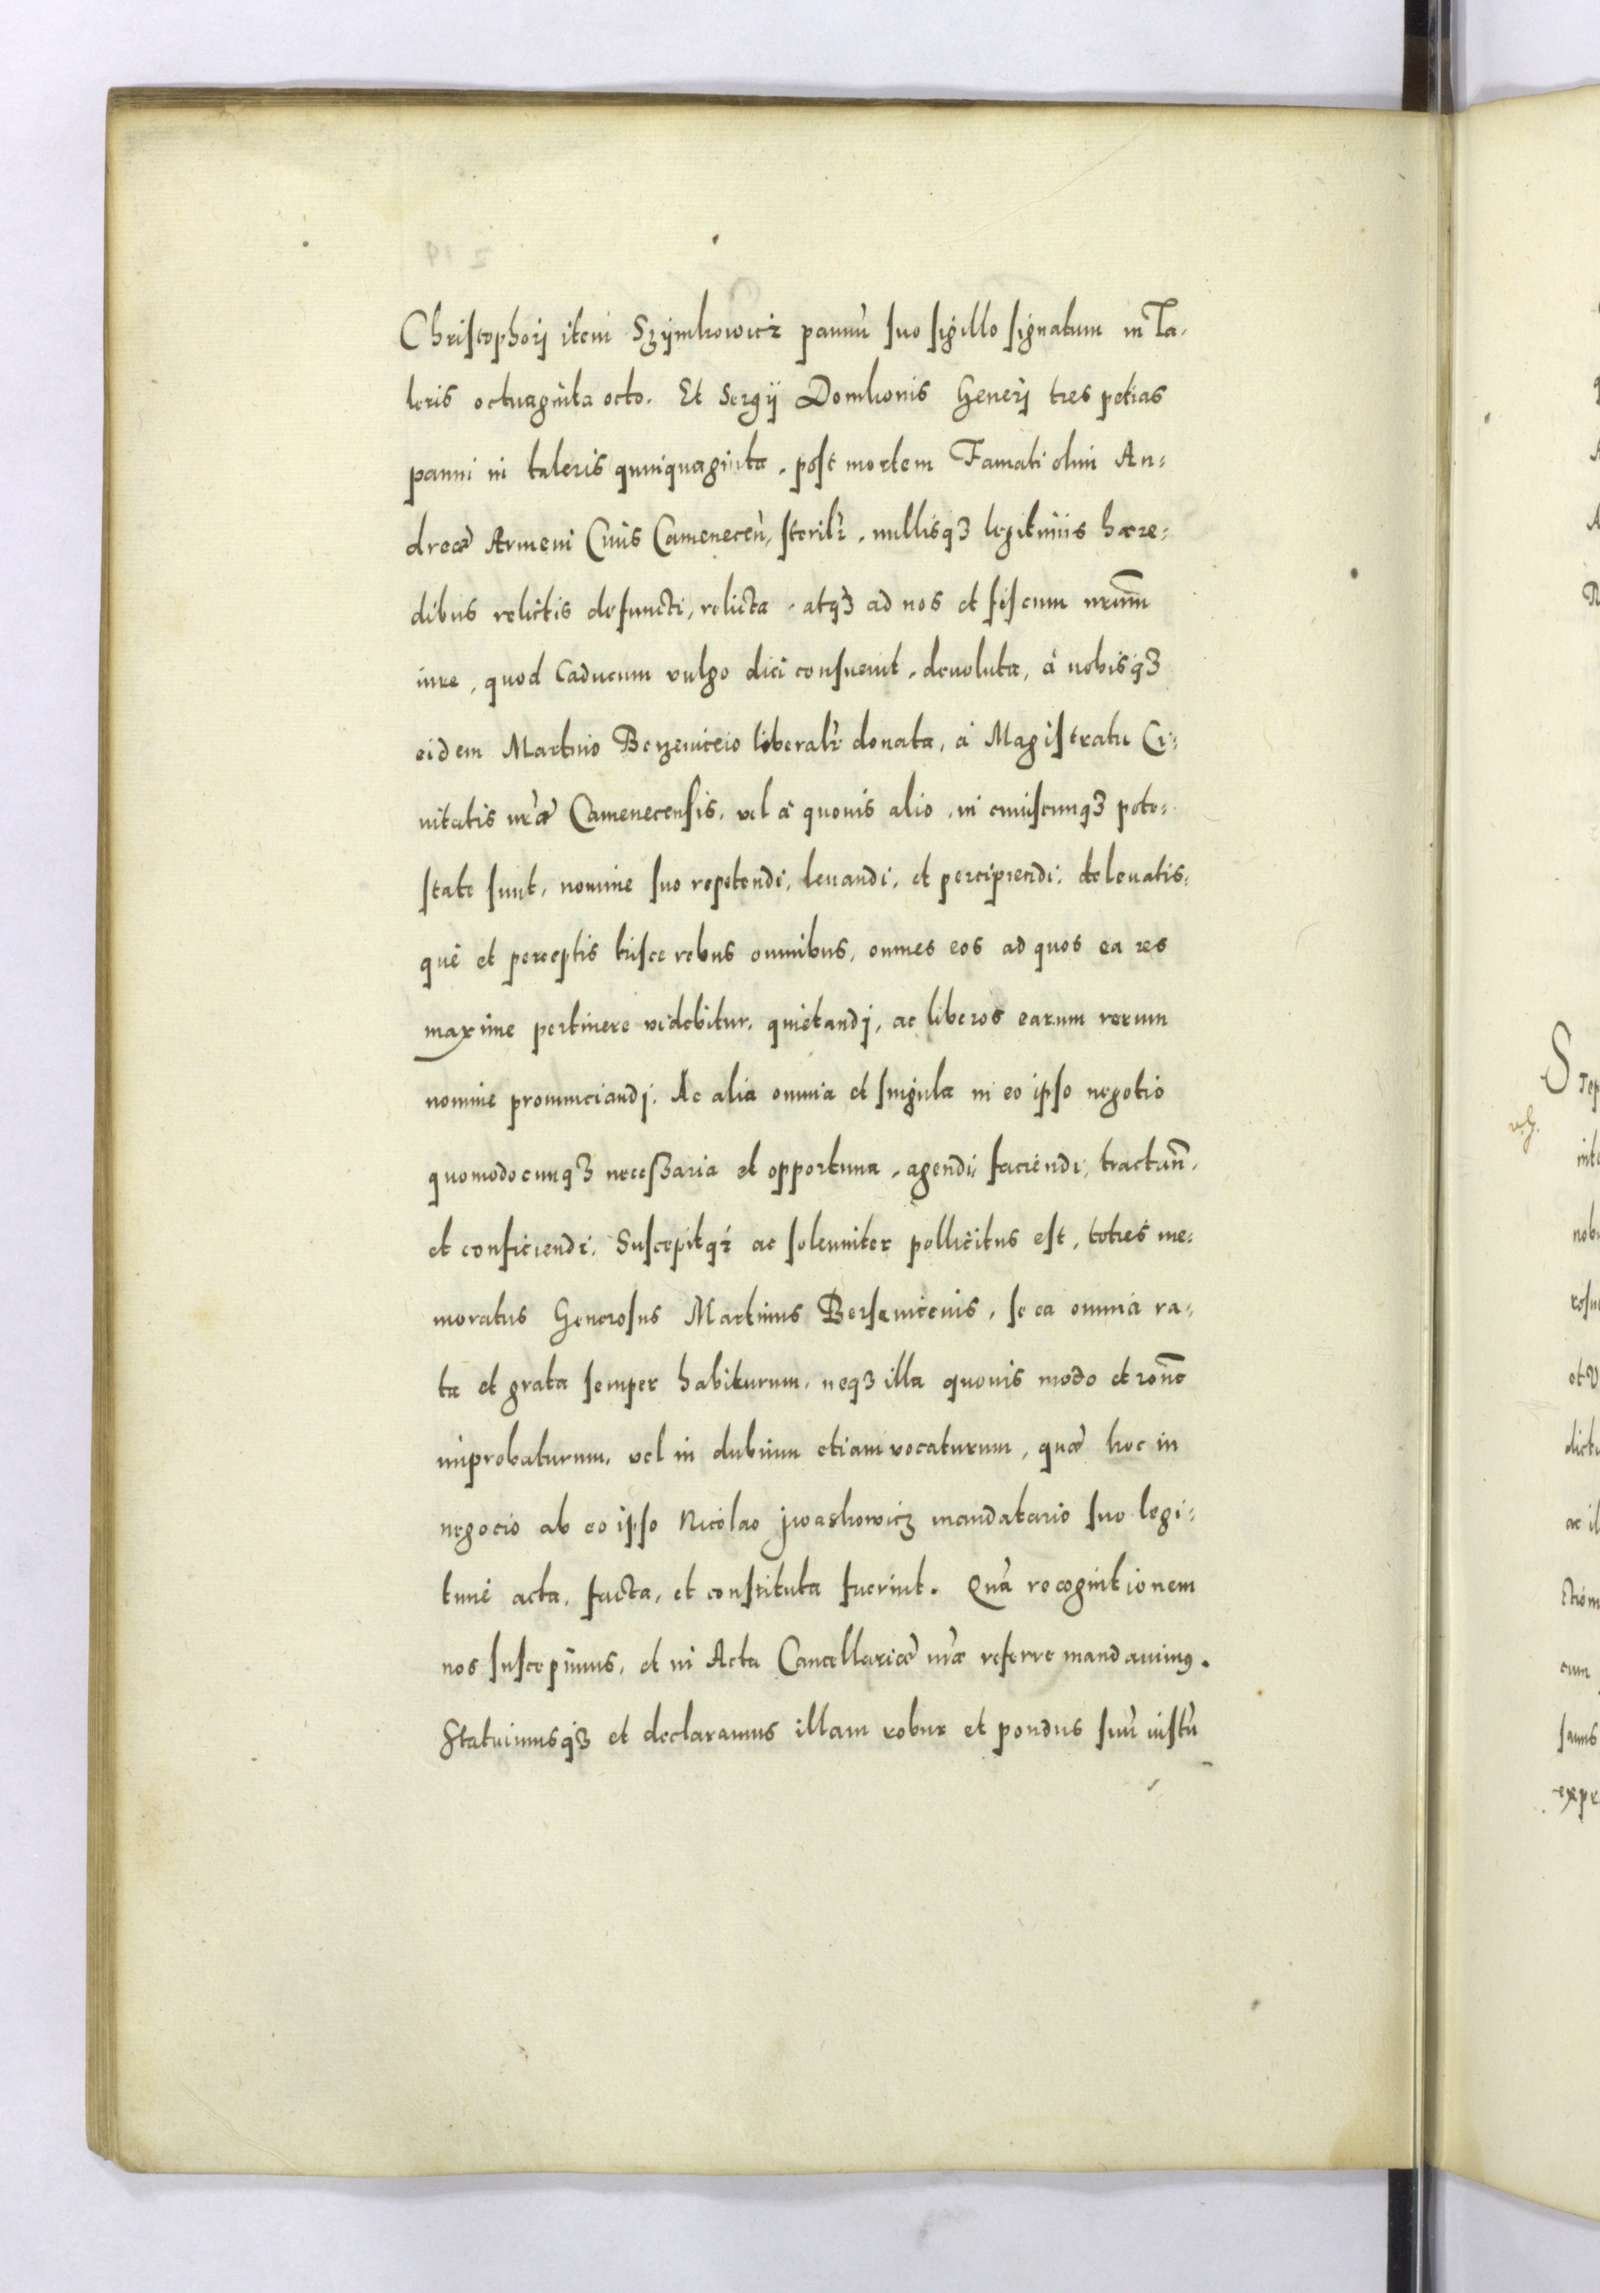 Christophorj item Szÿmkowicz pannũ suo sigillo signatum in Ta-
leris octuaginta octo. Et Sergij Domkonis Generj tres petias
panni in taleris quinquaginta, post mortem Famati olim An-
dreæ Armeni Civis Camenecen, sterilr, nullisq3 legitimis hære-
dibus relictis defuncti, relicta, atq3 ad nos et fiscum nrum
iure, quod Caducum vulgo dici consueuit, deuoluta, à nobisq3
eidem Martino Berzeuiceio liberalr donata, à Magistratu Ci-
uitatis nræ Camenecensis, vel à quouis alio, in cuiuscunq3 pote-
state sunt, nomine suo repetendi, leuandi, et percipiendi. de leuatis-
que et perceptis hisce rebus omnibus, omnes eos ad quos ea res
maxime pertinere videbitur, quietandj, ac liberos earum rerum
nomine pronunciandj. Ac alia omnia et singula in eo ipso negotio
quomodocunq3 necessaria et opportuna, agendi, faciendi, tractan.
et conficiendi. Suscepitq3 ac solemniter pollicitus est, toties me-
moratus Generosus Martinus Berseuiceius, se ea omnia ra-
ta et grata semper habiturum, neq3 illa quouis modo et rone
improbaturum, vel in dubium etiam vocaturum, quæ hoc in
negocio ab eo ipso Nicolao jwaskowicz mandatario suo legi-
time acta, facta, et constituta fuerint. Quã recognitionem
nos suscepimus, et in Acta Cancellariæ nræ referre mandauimus.
Statuimusq3 et declaramus illam robur et pondus suũ iustũ